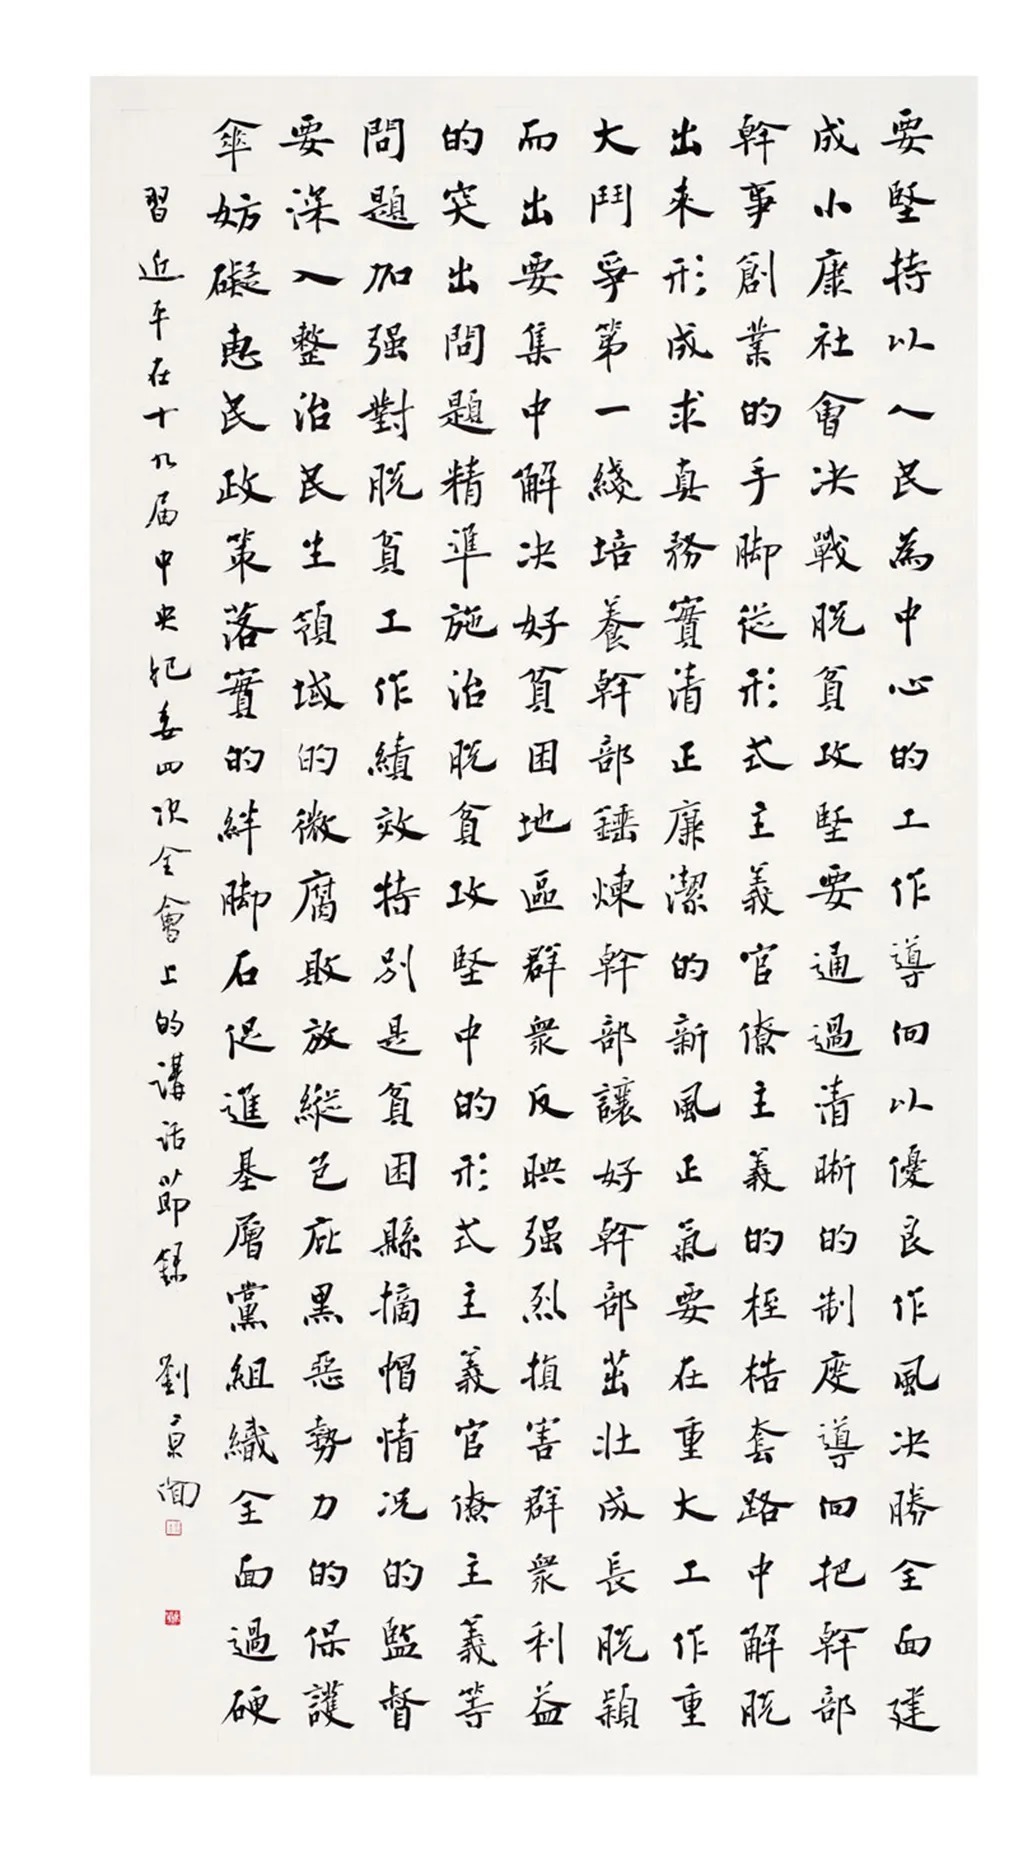 要堅持以人民為中心的工作導向以優良作風决勝全面建
成小康社會决戰脱貧攻堅要通過清晰的制度導向把幹部
幹事創業的手脚從形式主義官僚主義的桎梏套路中解脱
出來形成求真務實清正廉潔的新風正氣要在重大工作重
大鬥爭第一綫培養幹部錘煉幹部讓好幹部茁壯成長脱穎
而出要集中解决好貧困地區群衆反映强烈損害群衆利益
的突出問題精準施治脱貧攻堅中的形式主義官僚主義等
問題加强對脱貧工作績效特別是貧困縣摘帽情况的監督
要深入整治民生領域的微腐敗放縱包庇黑惡勢力的保護
傘妨礙惠民政策落實的絆脚石促進基層黨組織全面過硬
習近平在十九届中央紀委四次全會上的講話節録 劉京聞